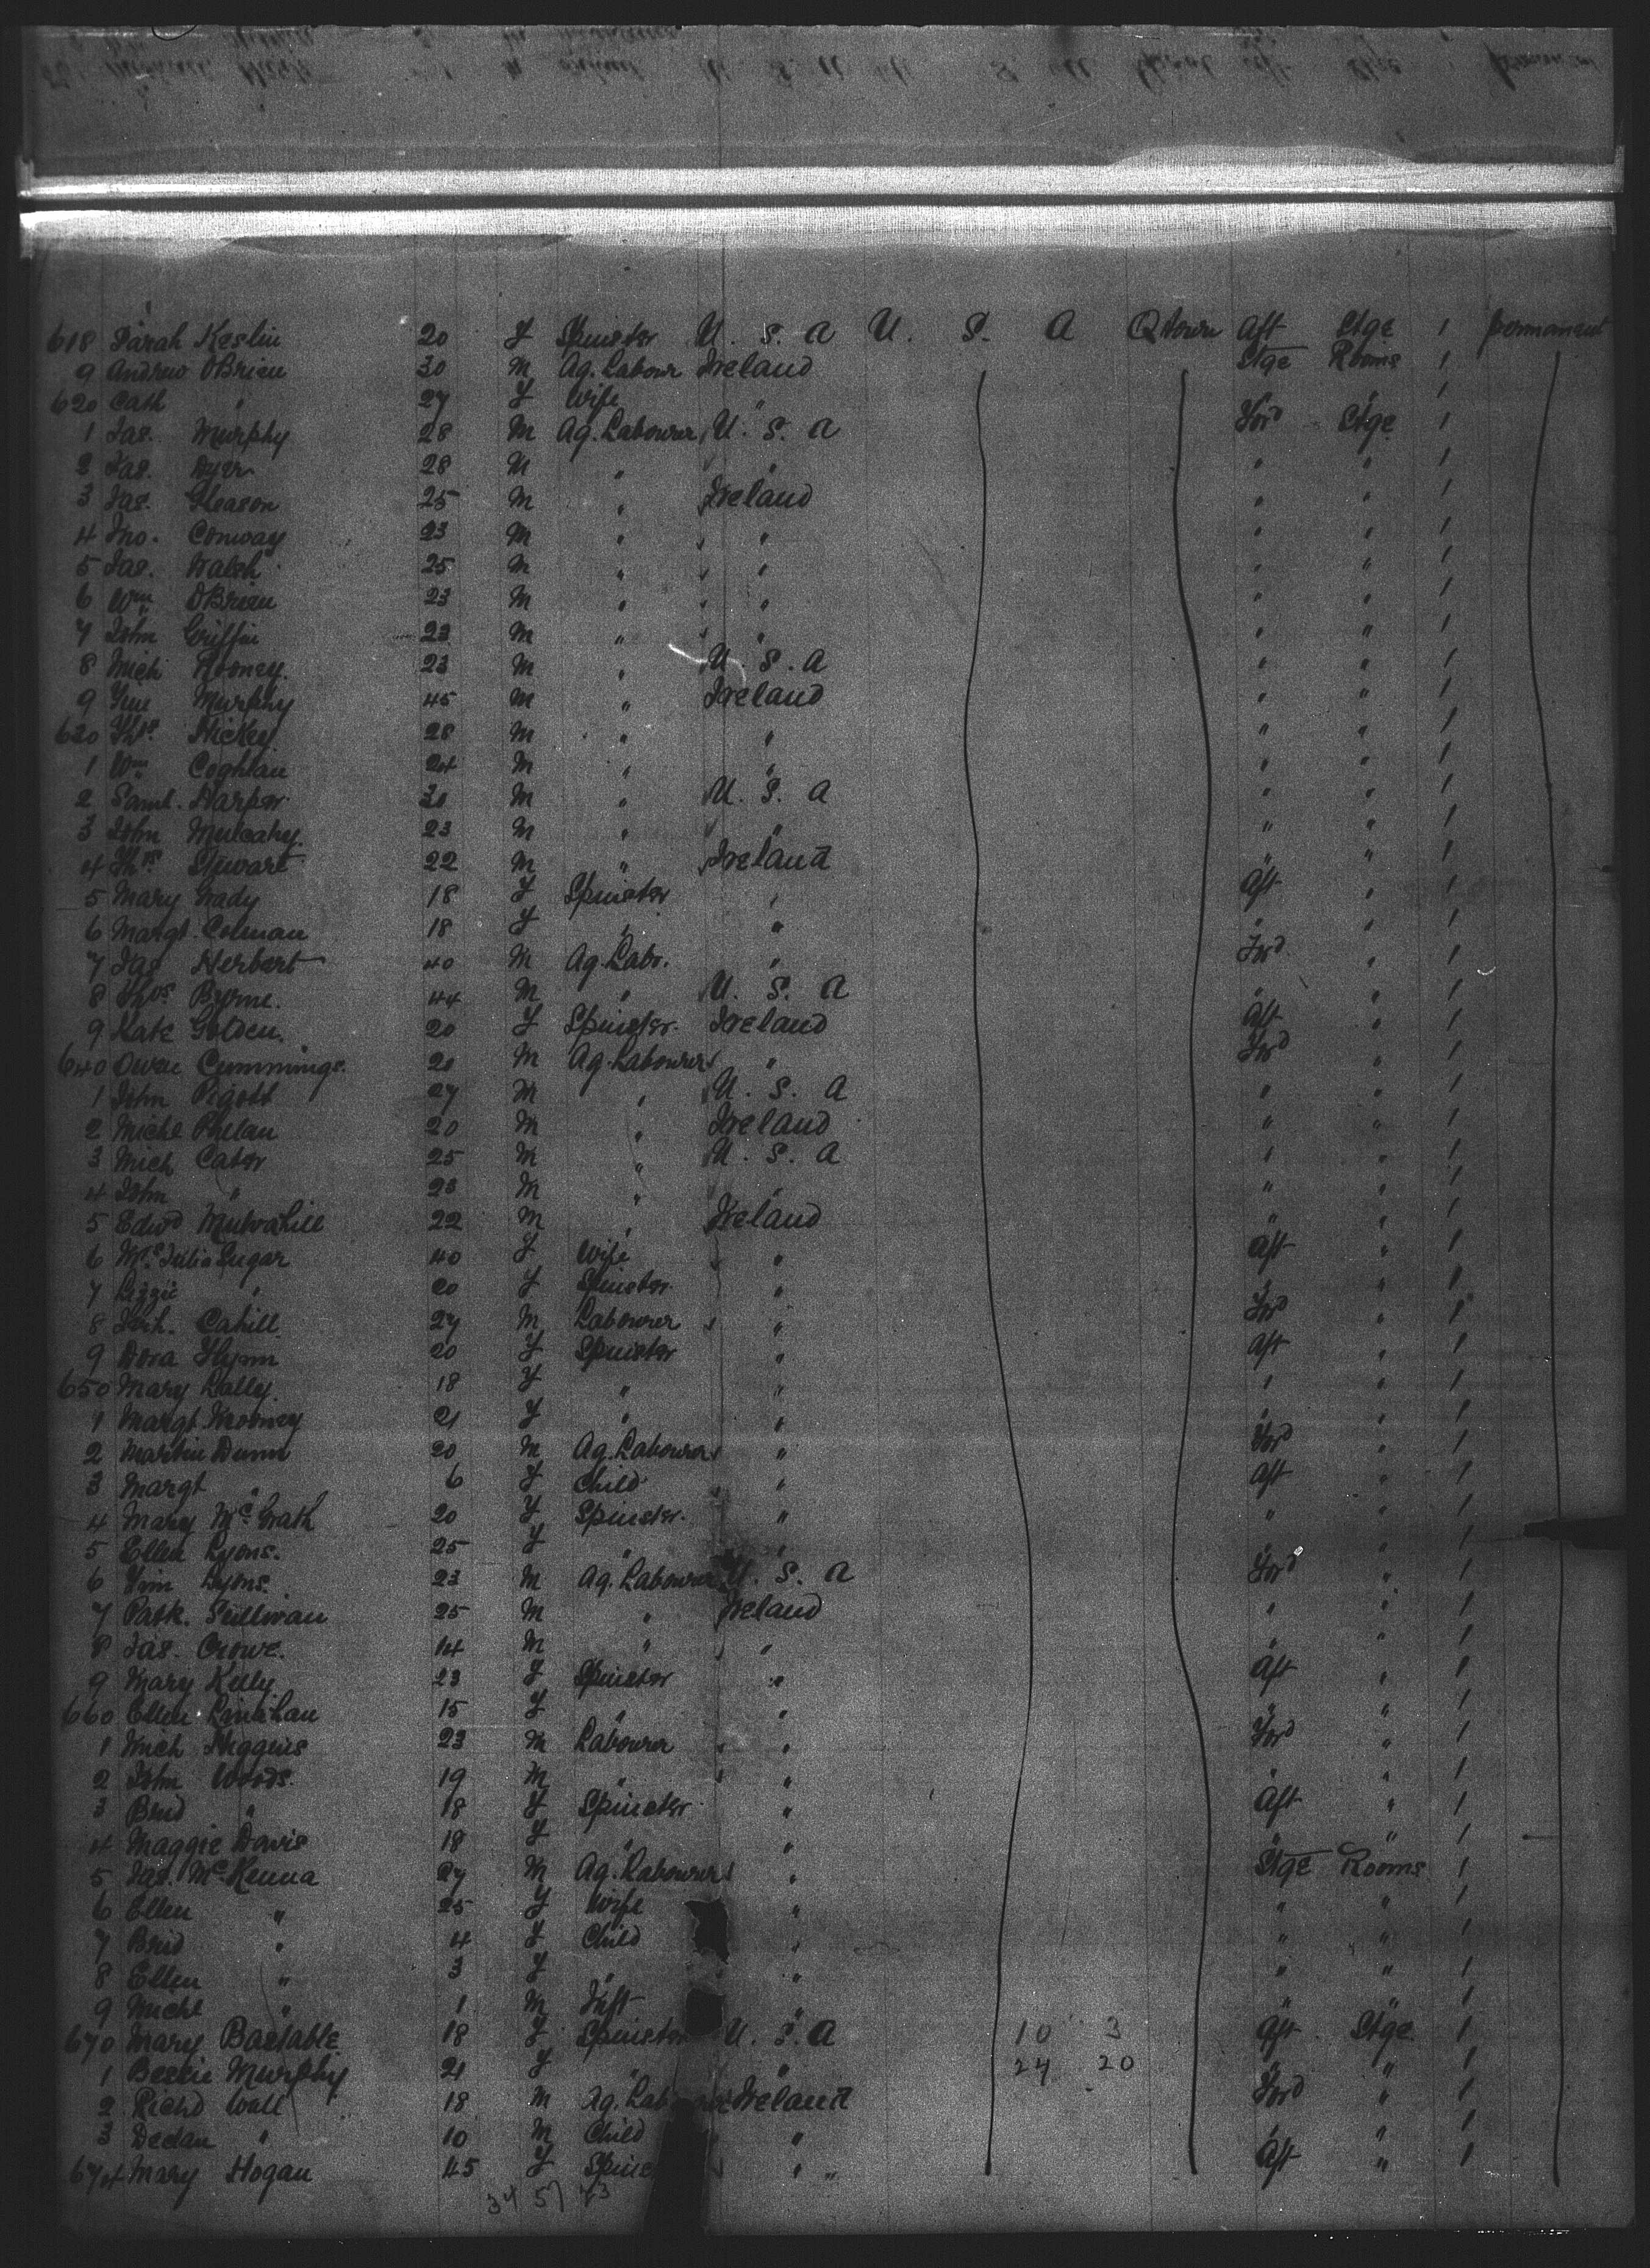 618 Sarah Keslin 20 F Spinster U. S. A U. S. A Qtown Aft Stge 1 permanent
9 Andrew OBrien 30 M Ag. Labour Ireland Stge Rooms 1
620 Cath " 27 F Wife " 1
1 Jas. Murphy 28 M Ag. Labourer U. S. A Ford Stge 1
2 Jas. Dyer 28 M " " " " 1
3 Jas. Gleason 25 M " Ireland " " 1
4 Jno. Conway 23 M " " " " 1
5 Jas. Walsh 25 M " " " " 1
6 Wm OBrien 23 M " " " " 1
7 John Griffin 23 M " " " " 1
8 Mich Rooney 23 M " U. S. A " " 1
9 Murphy 45 M " Ireland " " 1
630 Thos Hickey 28 M " " " " 1
1 Wm Coghlan 24 M " " " " 1
2 Saml. Harper 30 M " U. S. A " " 1
3 John Mulcahy 23 M " " " " 1
4 Thos Stewart 22 M " Ireland " " 1
5 Mary Grady 18 F Spinster " Aft " 1
6 Margt. Colman 18 F " " " " 1
7 Jas Herbert 40 M Ag. Labr. " Ford " 1
8 Thos Byrne. 44 M " U. S. A " " 1
9 Kate Golden. 20 F Spinster. Ireland Aft " 1
640 Owen Cummings 20 M Ag. Labourer " Ford " 1
1 John Pigott 27 M " U. S. A " " 1
2 Michl Phelan 20 M " Ireland " " 1
3 Mich Cater 25 M " U. S. A " " 1
4 John " 23 M " " " " 1
5 Edwd Mulvahill 22 M " Ireland " " 1
6 Mrs Julia Sugar 40 F Wife " Aft " 1
7 Lizzie " 20 F Spinster. " " 1
8 Cahill 27 M Labourer " Ford " 1
9 Dora Flynn 20 F Spinster " Aft " 1
650 Mary Lally 18 F " " " " 1
1 Margt. Mooney 21 F " " " " 1
2 Martin Dunn 20 M Ag. Labourer " Ford " 1
3 Margt " 6 F Child " Aft " 1
4 Mary McGrath 20 F Spinster. " " " 1
5 Ellen Lyons. 25 F " " " " 1
6 Lyons. 23 M Ag. Labourer U. S. A Ford " 1
7 Patk. Sullivan 25 M " Ireland " " 1
8 Jas. Crowe. 14 M " " " " 1
9 Mary Kelly 23 F Spinster " Aft " 1
660 Ellen Linihan 15 F " " " " 1
1 Mich Higgins 23 M Labourer " Ford " 1
2 John Woods. 19 M " " " " 1
3 Brid " 18 F Spinster " Aft " 1
4 Maggie Davis 18 F " " " " 1
5 Jas. McKenna 27 M Ag. Labourer " Stge Rooms 1
6 Ellen " 25 F Wife " " " 1
7 Brid " 4 F Child " " " 1
8 Ellen " 3 F " " " " 1
9 Michl " 1 M Inft " " " 1
670 Mary Bastable 18 F Spinster U. S. A 10 3 Aft Stge 1
1 Bessie Murphy 21 F " " 24 20 " " 1
2 Richd Wall 18 M Ag. Lab Ireland Ford " 1
3 Declan " 10 M Child " " " 1
674 Mary Hogan 45 F Spins " " Aft " 1
34 57 23